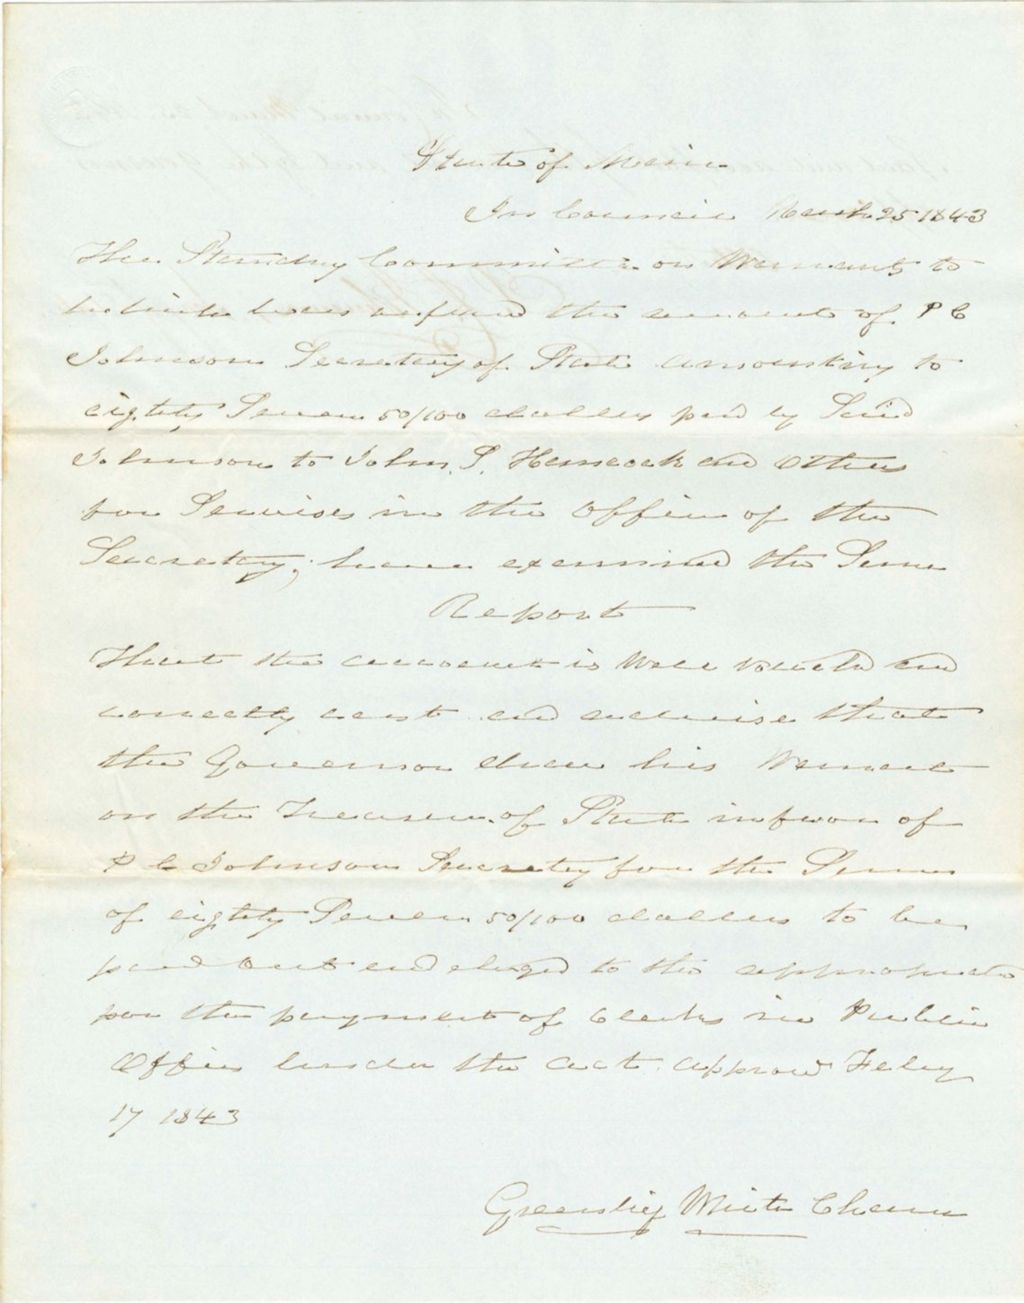 State of Maine
In Council March 25 1843
The Standing Committee on Warrants to
which was refered the account of P C
Johnson Secretary of State amounting to
eighty Seven 50/100 dollars paid by Said
Johnson to John S. Hancock and Others
for Services in the Office of the
Secretary, have examined the Same
Report
That the account is Well vouched and
correctly cast and advise that
the Governor draw his Warrant
on the Treasurer of State in favor of
P C Johnson Secretary for the Sum
of eighty Seven 50/100 dollars to be
paid out and charged to the appropriation
for the payment of Clerks in Public
Offices under the act approved Feby
17 1843
Greenlief White Chairman